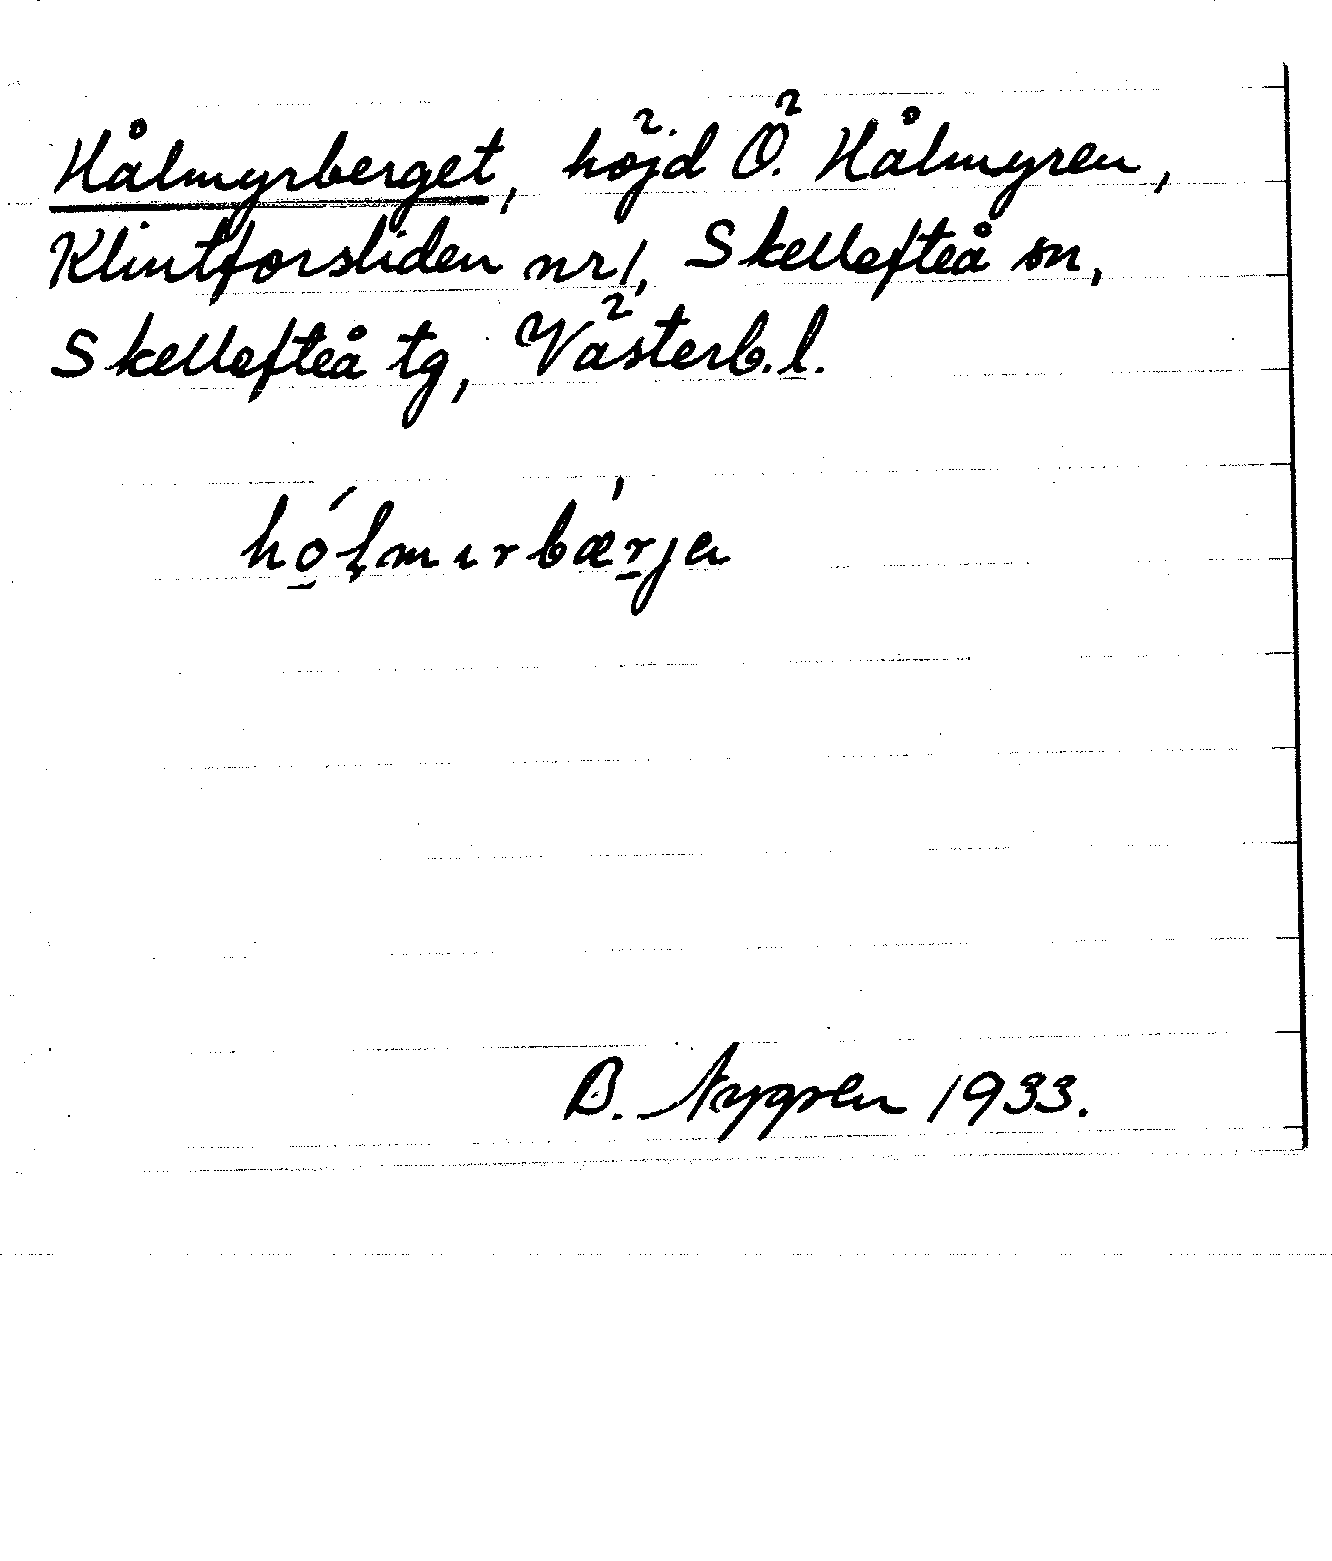 Hålmyrberget, höjd Ö. Hålmyren,
Klintforsliden nr 1, Skellefteå sn,
Skellefteå tg, Västerb. l.
hó̲ḷmırbæ̀r̲ja
B. Nygren 1933.